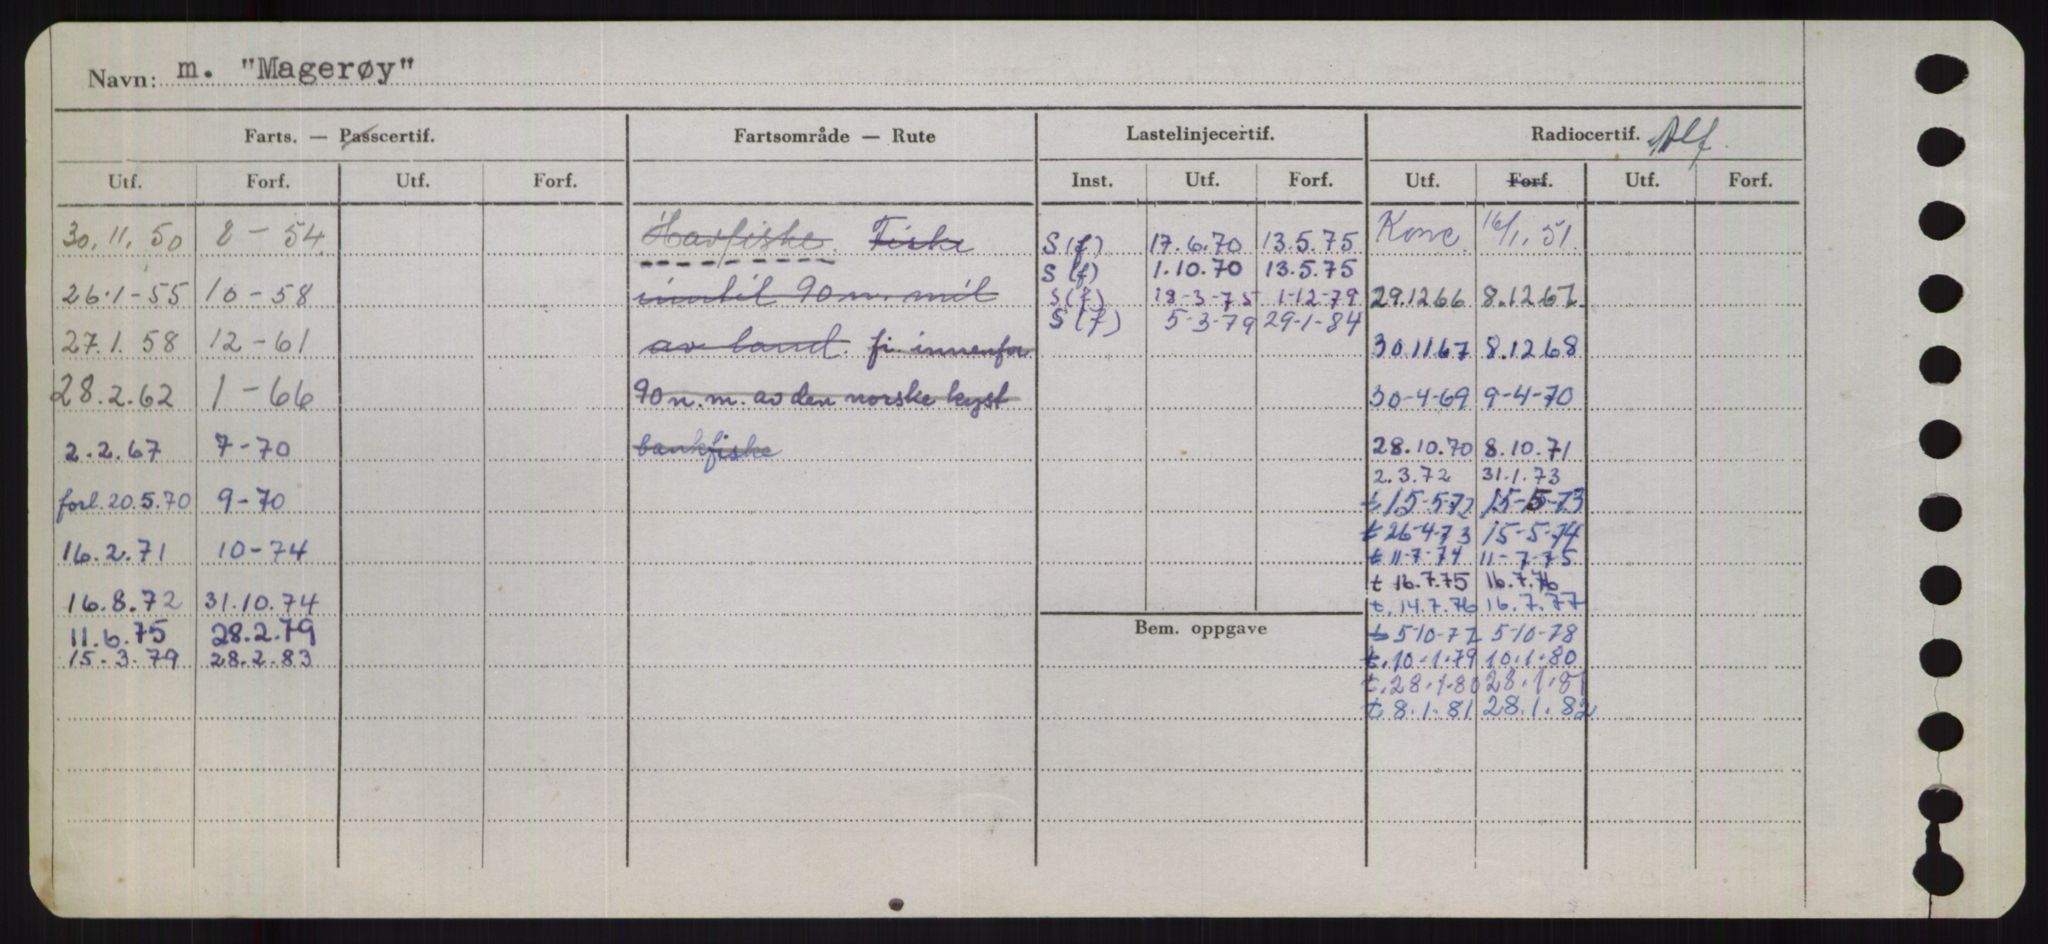 Navn: m. "Magerøy"
Farts. — Passcertif. Fartsområde — Rute Lastelinjecertif. Radiocertif. Tlf.
Utf. Forf. Utf. Forf. Inst. Utf. Forf. Utf. Forf. Utf. Forf.
30.11.50 8-54 Havfiske. Fiske S(f) 17.6.70 13.5.75 Konc. 16/1.51
S(f) 1.10.70 13.5.75
26-1-55 10-58 inntil 90 n. mil S(f) 18-3-75 1-12-79 29.12.66 8.12.67
S(f) 5-3-79 29-1-84
27.1.58 12-61 av land. fi. innenfor 30.11.67 8.12.68
28.2.62 1-66 90 n.m. av den norske kyst 30-4-69 9-4-70
2.2.67 7-70 bankfiske 28.10.70 8.10.71
2.3.72 31.1.73
forl. 20.5.70 9-70 t 15-5-72 15-5-73
t 26-4-73 15-5-74
16.2.71 10-74 t 11-7-74 11-7-75
t 16.7.75 16.7.76
16.8.72 31.10.74 t. 14.7.76 16.7.77
11.6.75 28.2.79 t 5-10-77 5-10-78
15-3-79 28.2.83 t. 10-1-79 10.1.80
t. 28.1.80 28.1.81
t 8.1.81 28.1.82
Bem. oppgave